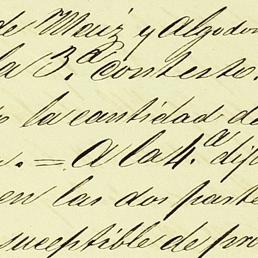 de Maiz y Algodon
la 3.ª contesto.
la cantidad de
= A la 4.ª dijo
en las dos parte
susceptible de pro